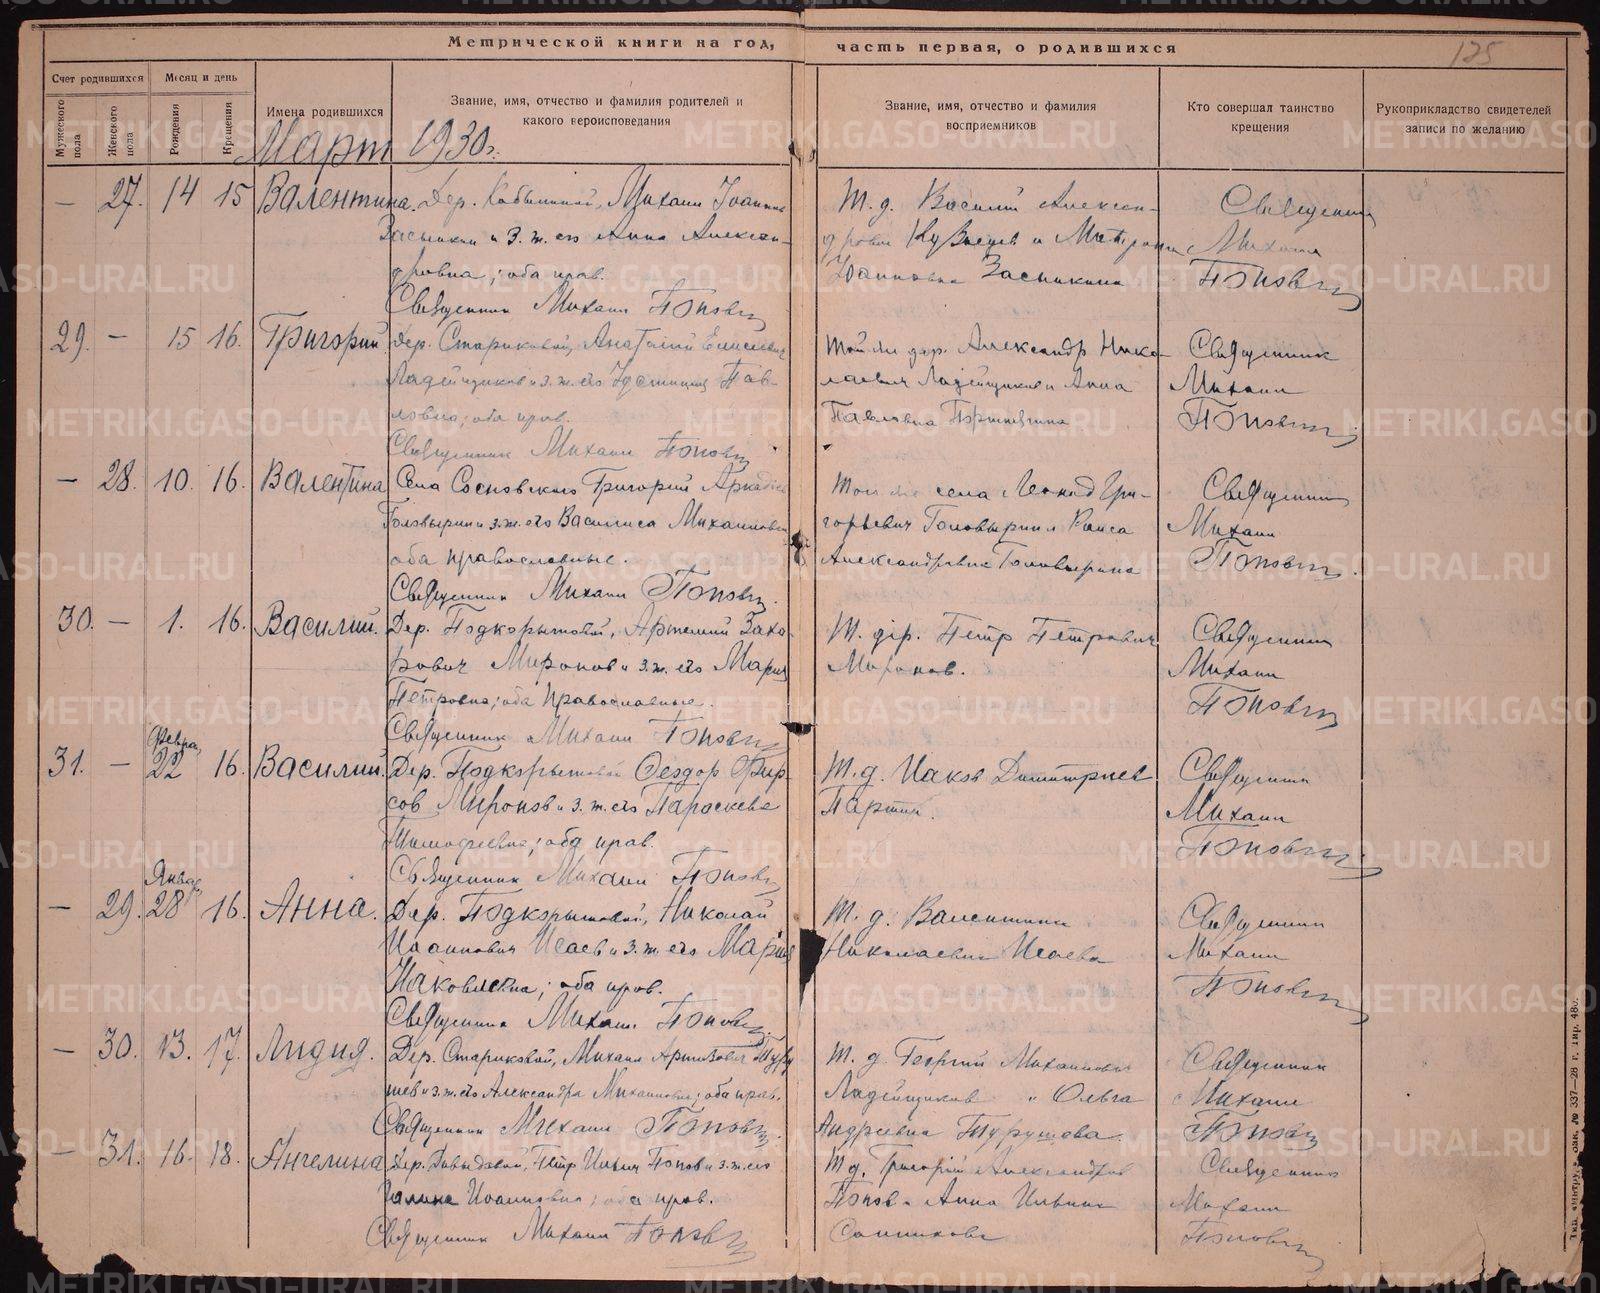 Метрической книги на год, часть первая, о родившихся
125
Счет родившихся
Месяц и день
Мужеского пола
Женского пола
Рождения
Крещения
Имена родившихся
Звание, имя, отчество и фамилия родителей и
какого вероисповедания
Звание, имя, отчество и фамилия
восприемников
Кто совершал таинство
крещения
Рукоприкладство свидетелей
записи по желанию
Март 1930 г.
— 27. 14 15 Валентина.
Дер. Михаил Иоаннов
Засыпкин и з. ж. его Анна Алексан-
дровна; оба прав.
Священник Михаил Попов
Т. д. Василий Алексан-
дрович Кузнецов и Матрона
Иоанновна Засыпкина
Священник
Михаил
Попов
29. — 15 16. Григорий.
Дер. Стариковой, Анатолий Елисеевич
Ладейщиков и з. ж. его Устиния Пав-
ловна; оба прав.
Священник Михаил Попов
Той же дер. Александр Нико-
лаевич Ладейщиков и Анна
Павловна
Священник
Михаил
Попов
— 28. 10. 16. Валентина
Села Сосновского Григорий Аркадиев
Головырин и з. ж. его Василиса Михаиловна
оба православные.
Священник Михаил Попов.
Той же села Леонид Гри-
горьевич Головырин и Раиса
Александровна Головырина
Священник
Михаил
Попов.
30. — 1. 16. Василий.
Дер. Подкорытовой, Артемий Заха-
рович Миронов и з. ж. его Мария
Петровна; оба православные.
Священник Михаил Попов
Т. дер. Петр Петрович
Миронов.
Священник
Михаил
Попов
31. — Февра. 22 16. Василий.
Дер. Подкорытовой Феодор Фир-
сов Миронов и з. ж. его Параскева
Тимофеевна; оба прав.
Священник Михаил Попов
Т. д. Иаков Димитриев
Партин.
Священник
Михаил
Попов
— 29. Январ. 28 16. Анна.
Дер. Подкорытовой, Николай
Иоаннович Исаев и з. ж. его Мария
Иаковлевна; оба прав.
Священник Михаил Попов.
Т. д. Валентина
Николаевна Исаева
Священник
Михаил
Попов
— 30. 13. 17. Лидия.
Дер. Стариковой, Михаил
и з. ж. его Александра Михаиловна; оба прав.
Священник Михаил Попов.
Т. д. Георгий Михаилович
Ладейщиков и Ольга
Андреевна Турушева.
Священник
Михаил
Попов
— 31. 16. 18. Ангелина
Дер. Давыдовой, Петр Ильич Попов и з. ж. его
Галина Иоанновна; оба прав.
Священник Михаил Попов
Т. д. Григорий Александров
Попов и Анна Ильина
Санникова
Священник
Михаил
Попов
METRIKI.GASO-URAL.RU